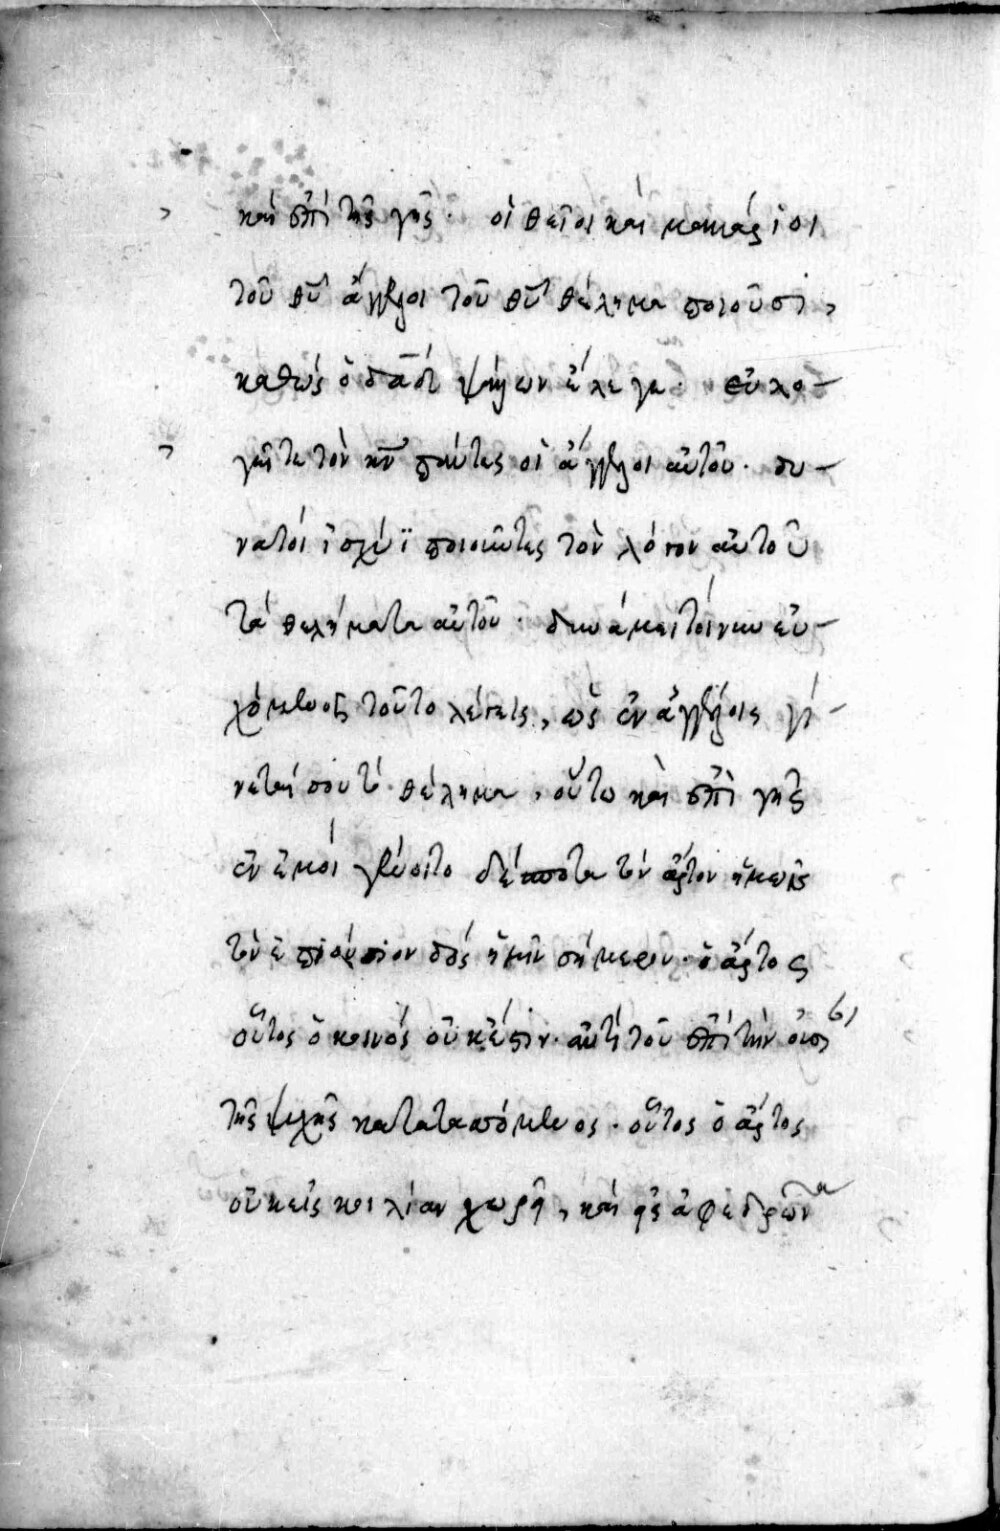 καὶ ἐπὶ τῆς γῆς. οἱ θεῖοι καὶ μακάριοι
τοῦ θῦ ἄγγελοι τοῦ θῦ θέλημα ποιοῦσι,
καθὼς ὁ δᾱδ ψάλλων ἔλεγε. εὐλο-
γεῖτε τὸν κν̄ πάντες οἱ ἄγγελοι αὐτοῦ. δυ-
νατοὶ ἰσχύϊ ποιοῦντες τὸν λόγον αὐτοῦ
τὰ θελήματα αὐτοῦ. δυνάμει τοίνυν εὐ-
χόμενος τοῦτο λέγεις, ὡς ἐν ἀγγέλοις γί-
νεταί σου τὸ θέλημα, οὕτω καὶ ἐπὶ γῆς
ἐν ἐμοὶ γένοιτο δέσποτα τὸν ἄρτον ἡμῶν
τὸν ἐπιούσιον δὸς ἡμῖν σήμερον. ὁ ἄρτος
οὗτος ὁ κοινὸς οὐκ ἔστιν. ἀντὶ τοῦ ἐπὶ τὴν οὐσί
τῆς ψυχῆς κατατασσόμενος. οὗτος ὁ ἄρτος
οὐκ εἰς κοιλίαν χωρῆ, καὶ εἰς ἀφεδρῶνα